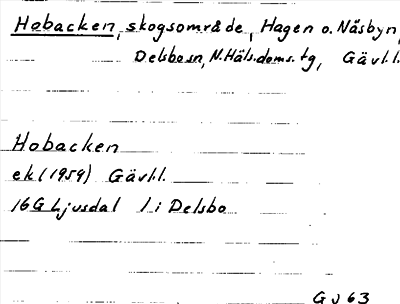 Hobacken, skogsområde, Hagen o. Näsbyn,
Delsbo sn, N. Häls. doms. tg, Gävl. l.
Hobacken
ek (1959) Gävl.l.
16G Ljusdal 1 i Delsbo
GJ 63